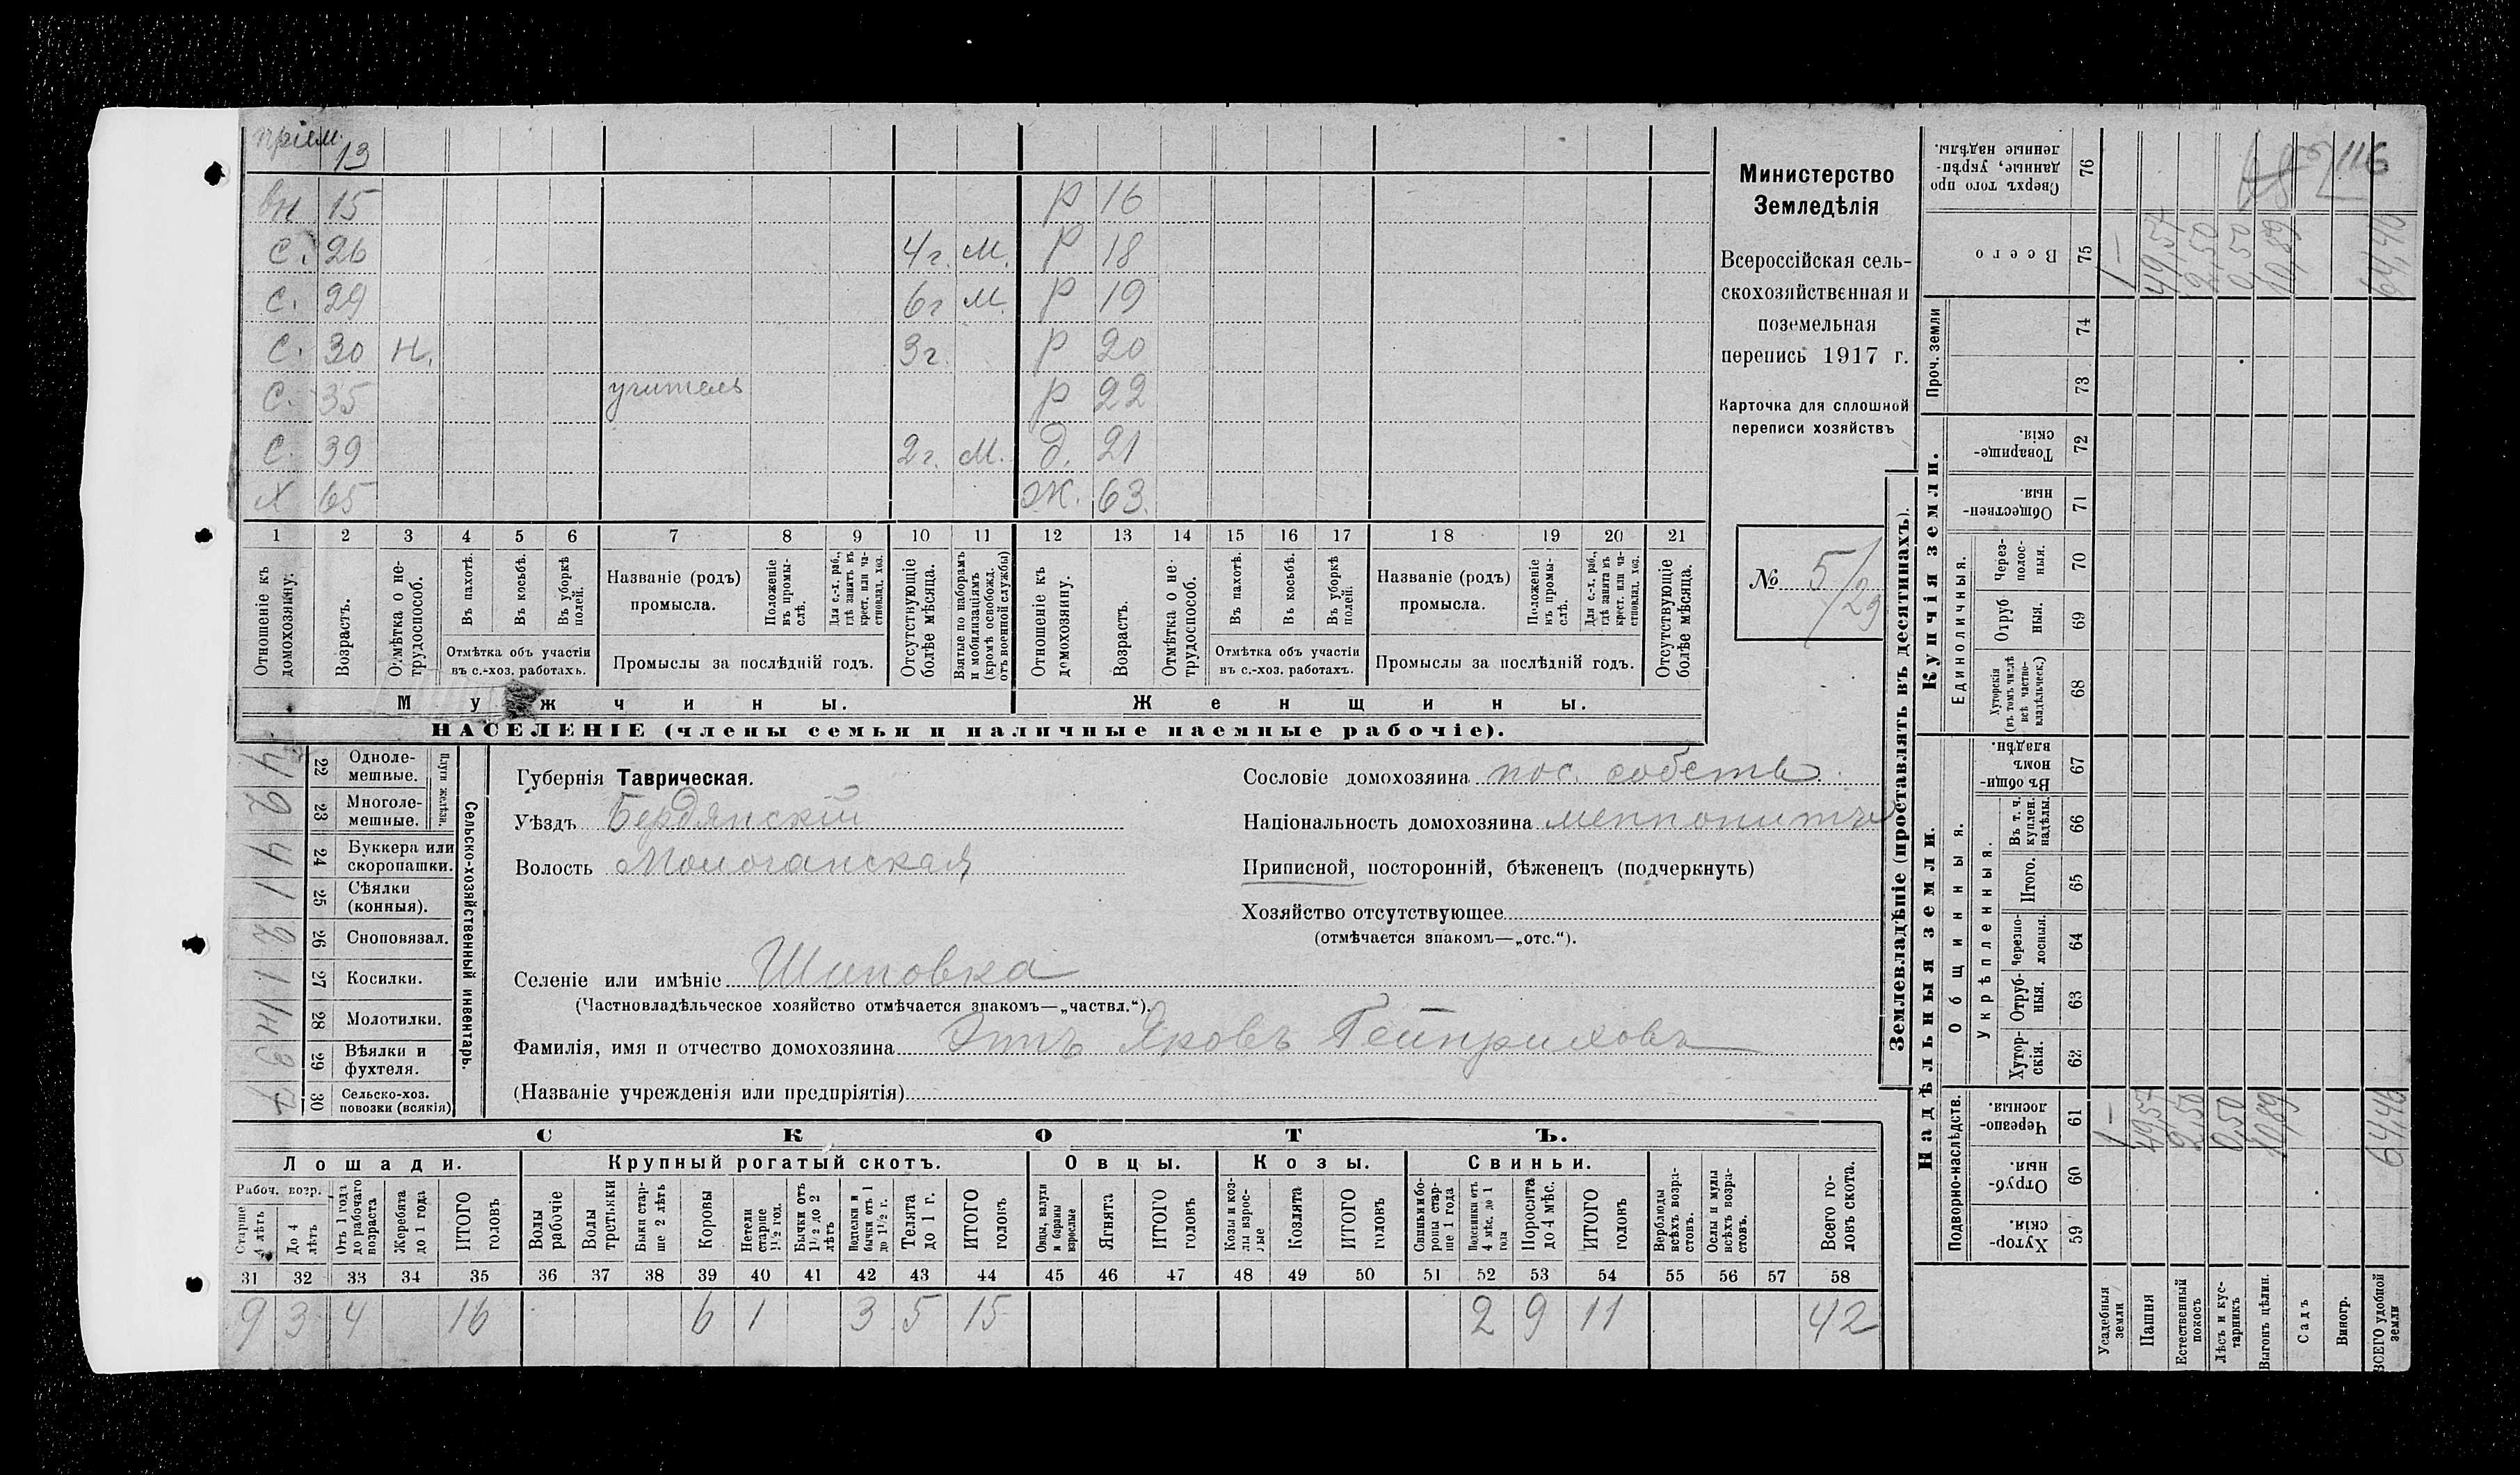 пріем. 13
вн 15 р 16
с. 26 4г. м. р 18
с. 29 6г м. р 19
с. 30 н. 3г. р 20
с. 35 учитель р 22
с. 39 2г. м. д. 21
х 65 ж. 63.
1 2 3 4 5 6 7 8 9 10 11 12 13 14 15 16 17 18 19 20 21
Отношеніе къ домохозяину.
Возрастъ.
Отмѣтка о не-трудоспособ.
Въ пахотѣ.
Въ косьбѣ.
Въ уборкѣ полей.
Отмѣтка объ участіи
въ с.-хоз. работахъ.
Названіе (родъ)
промысла.
Положеніе въ промы-слѣ.
Для с.-х. раб., гдѣ занятъ въ крест. или ча-стновлад. хоз.
Промыслы за послѣдній годъ.
Отсутствующіе болѣе мѣсяца.
Взятые по наборамъ и мобилизаціямъ (кромѣ освобожд. отъ военной службы)
Отношеніе къ домохозяину.
Возрастъ.
Отмѣтка о не-трудоспособ.
Въ пахотѣ.
Въ косьбѣ.
Въ уборкѣ полей.
Отмѣтка объ участіи
въ с.-хоз. работахъ.
Названіе (родъ)
промысла.
Положеніе въ промы-слѣ.
Для с.-х. раб., гдѣ занята въ крест. или ча-стновлад. хоз.
Промыслы за послѣдній годъ.
Отсутствующіе болѣе мѣсяца.
Мужчины. Женщины.
НАСЕЛЕНІЕ (члены семьи и наличные наемные рабочіе).
Министерство
Земледѣлія
Всероссійская сель-
скохозяйственная и
поземельная
перепись 1917 г.
Карточка для сплошной
переписи хозяйствъ
№ 5/29
4 22 Одноле-мешные.
2 23 Многоле-мешные.
Плуги желѣзн.
4 24 Буккера или скоропашки.
1 25 Сѣялки (конныя).
2 26 Сноповязал.
1 27 Косилки.
28 Молотилки.
3 29 Вѣялки и фухтеля.
30 Сельско-хоз. повозки (всякія)
Сельско-хозяйственный инвентарь.
Губернія Таврическая.
Уѣздъ Бердянскій
Волость Молочанская
Селеніе или имѣніе Шиповка
(Частновладѣльческое хозяйство отмѣчается знакомъ—„частвл.“).
Фамилія, имя и отчество домохозяина Эппъ Яковъ Гейнриховъ
(Названіе учрежденія или предпріятія)
Сословіе домохозяина пос. собств.
Національность домохозяина меннонитъ
Приписной, посторонній, бѣженецъ (подчеркнуть)
Хозяйство отсутствующее
(отмѣчается знакомъ—„отс.“).
СКОТЪ.
Лошади. Крупный рогатый скотъ. Овцы. Козы. Свиньи.
Рабоч. возр.
Старше 4 лѣтъ
До 4 лѣтъ
Отъ 1 года до рабочаго возраста
Жеребята до 1 года
ИТОГО головъ
Волы рабочіе
Волы третьяки
Быки стар-ше 2 лѣтъ
Коровы
Нетели старше 1½ год.
Бычки отъ 1½ до 2 лѣтъ
Подтелки и бычки отъ 1 до 1½ г.
Телята до 1 г.
ИТОГО головъ
Овцы, валухи и бараны взрослые
Ягнята
ИТОГО головъ
Козы и коз-лы взрос-лые
Козлята
ИТОГО головъ
Свиньи и бо-ровы стар-ше 1 года
Подсвинки отъ 4 мѣс. до 1 года
Поросята до 4 мѣс.
ИТОГО головъ
Верблюды всѣхъ возра-стовъ.
Ослы и мулы всѣхъ возра-стовъ.
Всего го-ловъ скота.
31 32 33 34 35 36 37 38 39 40 41 42 43 44 45 46 47 48 49 50 51 52 53 54 55 56 57 58
9 3 4 16 6 1 3 5 15 2 9 11 42
Землевладѣніе (проставлять въ десятинахъ).
116
Сверхъ того про-даннные, укрѣп-ленные надѣлы. 76
Всего 75 1 — 49,57 2,50 0,50 10,89 64,46
Проч. земли 74 73
Купчія земли.
Товарище-скія. 72
Обществен-ныя 71
Единоличныя.
Через-полос-ныя. 70
Отруб-ныя. 69
Хуторскія (въ томъ числѣ всѣ частно-владѣльческ.) 68
Надѣльныя земли.
Общинныя.
Въ общи-номъ владѣн. 67
Укрѣпленныя.
Въ т. ч. куплен. надѣлы. 66
Итого. 65
Черезпо-лосныя. 64
Отруб-ныя. 63
Хутор-скія. 62
Подворно-наслѣдств.
Черезпо-лосныя. 61 1 — 49,57 2,50 0,50 10,89 64,46
Отруб-ныя. 60
Хутор-скія. 59
Усадебныя земли
Пашня
Естественный покосъ
Лѣсъ и кус-тарникъ
Выгонъ цѣлин.
Садъ
Виногр.
ВСЕГО удобной земли